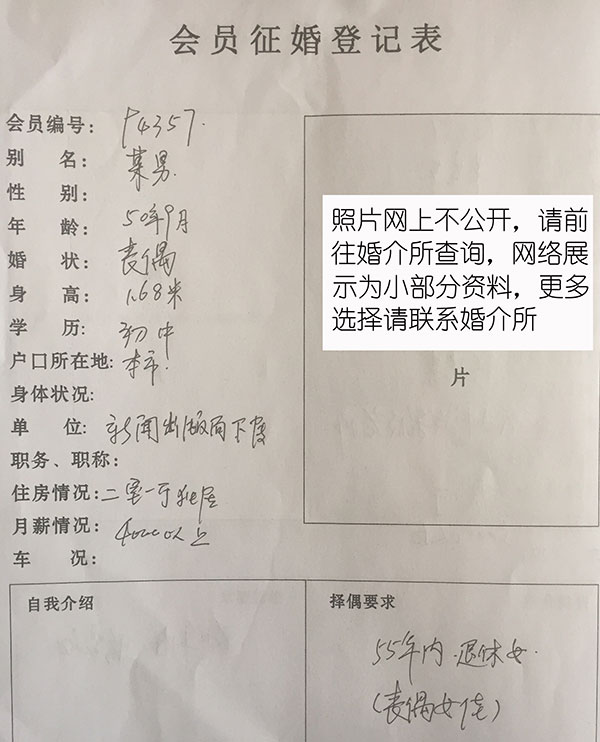 会员征婚登记表
会员编号: P4357.
别 名: 某男.
性 别:
年 龄: 50年9月
婚 状: 丧偶
身 高: 1.68米
学 历: 初中
户口所在地: 本市.
身体状况:
单 位: 新闻出版局下属
职务、职称:
住房情况: 二室一厅独居
月薪情况: 4000以上
车 况:
照片网上不公开，请前
往婚介所查询，网络展
示为小部分资料，更多
选择请联系婚介所
片
自我介绍
择偶要求
55年内.退休女.
(丧偶女佳)